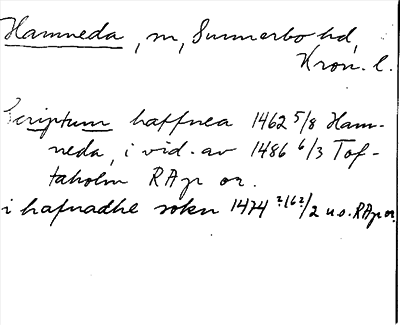 Hamneda, sn, Sunnerbo hd,
Kron. l.
Scriptum haffnea 1462 5/8 Ham-
neda, i vid. av 1486 6/3 Tof-
taholm RAp or.
i hafnadhe sokn 1474 2/2 u.o. RAp or.